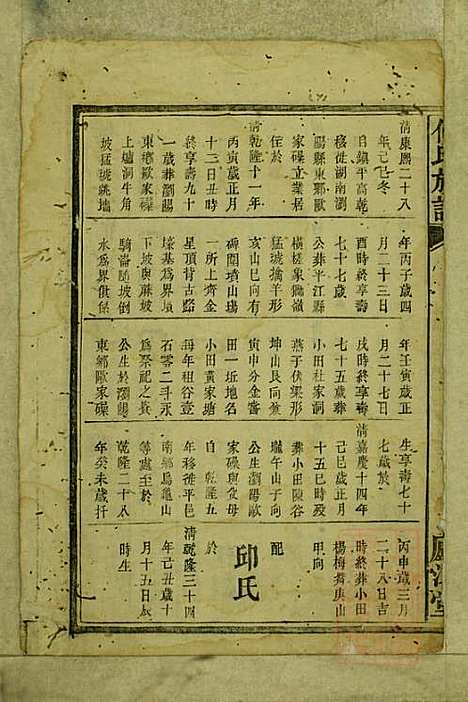 何氏族譜
廬江堂
清康熙二十八
年己巳冬
自鎮平高乾
移徙湖南瀏
陽縣東鄉歐
家磜立業居
住於
清乾隆十一年
丙寅歲正月
十三日丑時
終享壽九十
一歲葬瀏陽
東鄉歐家磜
上壚洞牛角
坡猛琥跳墻
年丙子歲四
月二十三日
酉時終享壽
七十七歲
公葬平江縣
橫槎象嶺
猛琥擒羊形
亥山巳向有
碑閣墳山塲
一所上齊金
星頂背古縣
壕基爲界墳
下坡與蔴坡
騎崙隨坡倒
水爲界俱係
年壬寅歲正
月二十七日
戌時終享壽
七十五歲葬
小田杜家洞
燕子伏梁形
坤山艮向兼
寅申分金齋
田一坵地名
小田黃家塘
每年租谷壹
石零二斗永
爲祭祀之資
公生於瀏陽
東鄉歐家磜
生享壽七十
七歲於
清嘉慶十四年
己巳歲正月
十五巳時歿
葬小田陳谷
壠午山子向
公生瀏陽歐
家磜與父母
自乾隆五
年移徙平邑
南鄉烏龜山
等處至於
乾隆二十八
年癸未歲扦
丙申歲三月
二十八日吉
時終葬小田
楊梅塅庚山
甲向
配
邱氏
於
清乾隆三十四
年己丑歲十
月十五日辰
時生